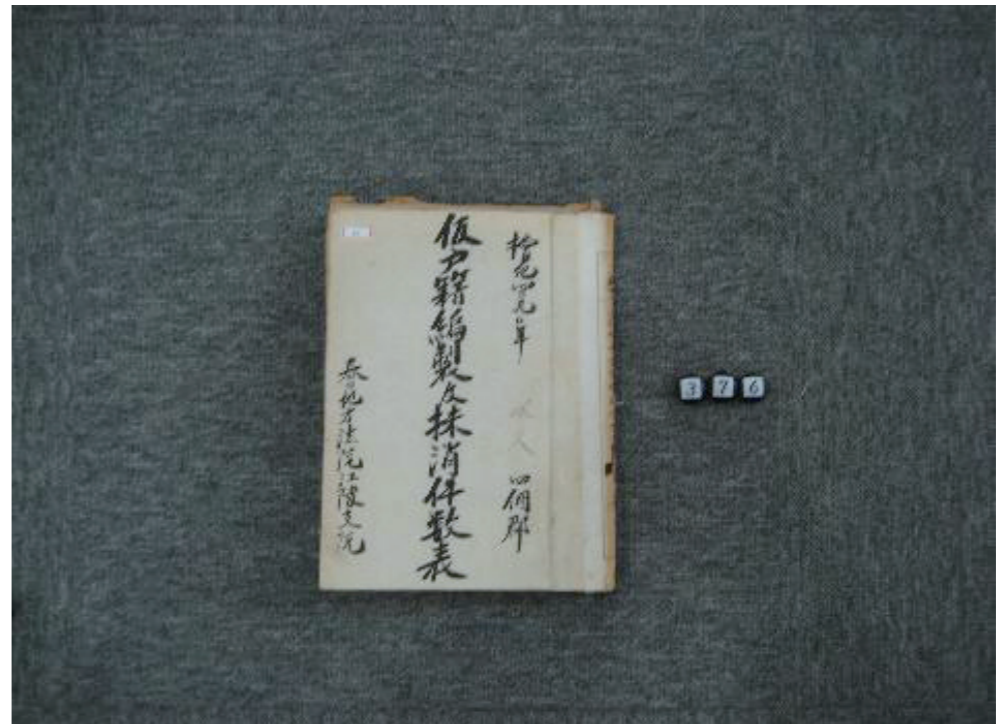 檀紀四二九〇年
四個郡
仮戸籍編製及抹消件数表
春川地方法院江陵支院
3 7 6